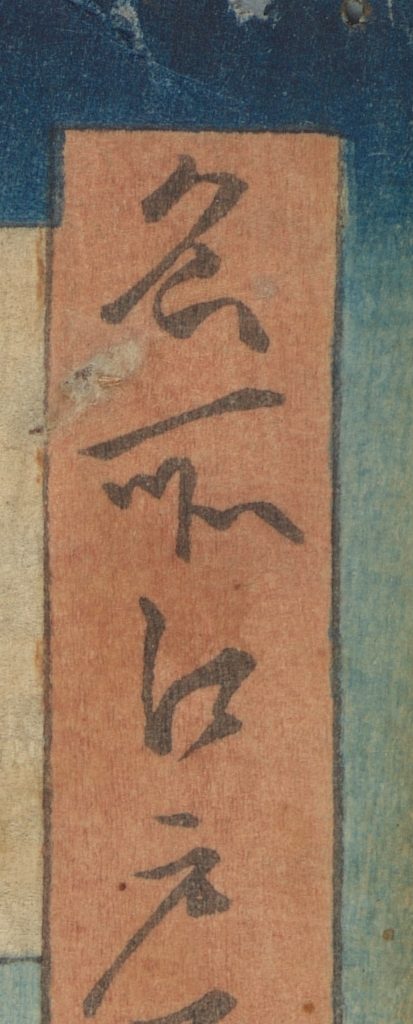 名所江戸